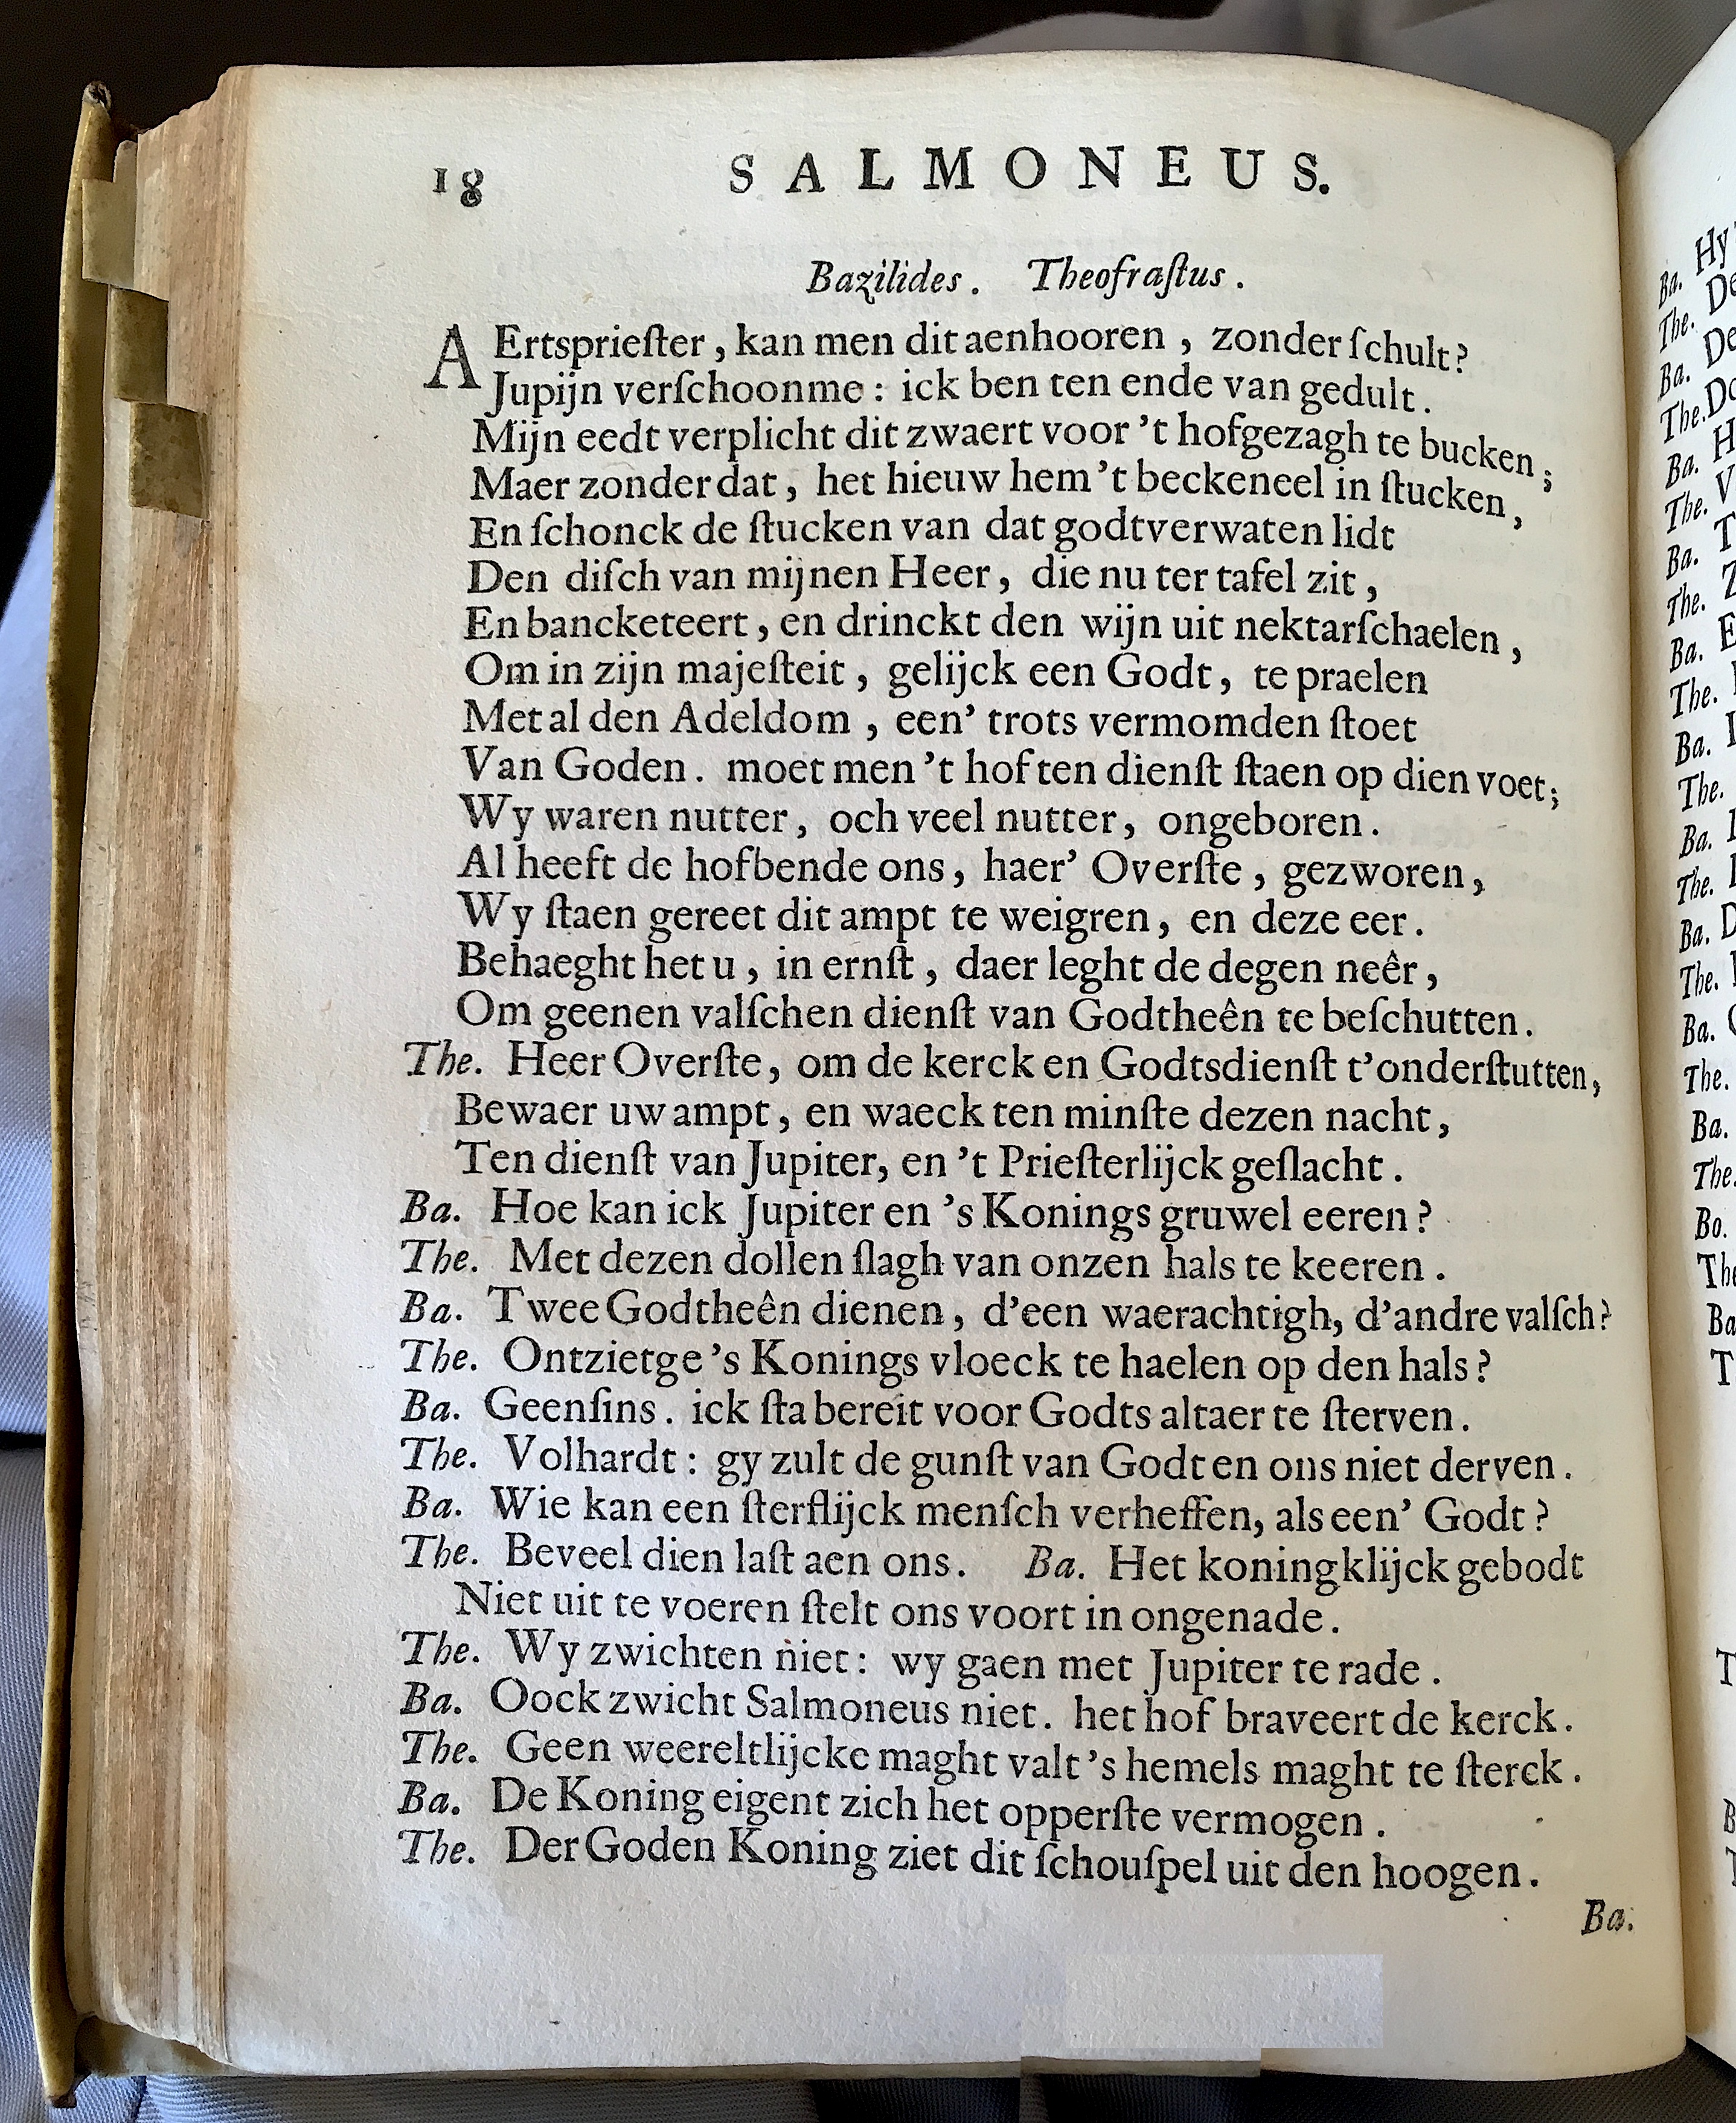 18 SALMONEUS.
Bazilides. Theofraſtus.
AErtsprieſter, kan men dit aenhooren, zonder ſchult?
Jupijn verſchoonme: ick ben ten ende van gedult.
Mijn eedt verplicht dit zwaert voor 't hofgezagh te bucken;
Maer zonder dat, het hieuw hem 't beckeneel in ſtucken,
En ſchonck de ſtucken van dat godtverwaten lidt
Den diſch van mijnen Heer, die nu ter tafel zit,
En bancketeert, en drinckt den wijn uit nektarſchaelen,
Om in zijn majeſteit, gelijck een Godt, te praelen
Met al den Adeldom, een' trots vermomden ſtoet
Van Goden. moet men 't hof ten dienſt ſtaen op dien voet;
Wy waren nutter, och veel nutter, ongeboren.
Al heeft de hofbende ons, haer' Overſte, gezworen,
Wy ſtaen gereet dit ampt te weigren, en deze eer.
Behaeght het u, in ernſt, daer leght de degen neêr,
Om geenen valſchen dienſt van Godtheên te beſchutten.
The. Heer Overſte, om de kerck en Godtsdienſt t'onderſtutten,
Bewaer uw ampt, en waeck ten minſte dezen nacht,
Ten dienſt van Jupiter, en 't Prieſterlijck geſlacht.
Ba. Hoe kan ick Jupiter en 's Konings gruwel eeren?
The. Met dezen dollen ſlagh van onzen hals te keeren.
Ba. Twee Godtheên dienen, d'een waerachtigh, d'andre valſch?
The. Ontzietge 's Konings vloeck te haelen op den hals?
Ba. Geenſins. ick ſta bereit voor Godts altaer te ſterven.
The. Volhardt: gy zult de gunſt van Godt en ons niet derven.
Ba. Wie kan een ſterflijck menſch verheffen, als een' Godt?
The. Beveel dien laſt aen ons. Ba. Het koningklijck gebodt
Niet uit te voeren ſtelt ons voort in ongenade.
The. Wy zwichten niet: wy gaen met Jupiter te rade.
Ba. Oock zwicht Salmoneus niet. het hof braveert de kerck.
The. Geen weereltlijcke maght valt 's hemels maght te ſterck.
Ba. De Koning eigent zich het opperſte vermogen.
The. Der Goden Koning ziet dit ſchouſpel uit den hoogen.
Ba.
Ba. Hy
The. De
Ba. De
The. Do
Ba. H
The. V
Ba. T
The. Z
Ba. E
The.
Ba.
The.
Ba.
The.
Ba. D
The.
Ba.
The.
Ba.
The.
Bo.
The
Ba
T